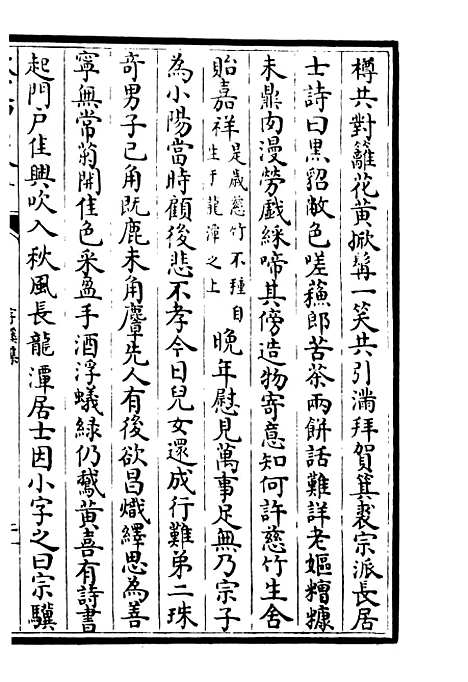 樽共對籬花黃掀髯一笑共引滿拜賀箕裘宗派長居
士詩曰黑貂敝色嗟蘓郎苦茶兩餅話難詳老嫗糟糠
未鼎肉漫勞戲綵啼其傍造物寄意知何許慈竹生舍
貽嘉祥是歲慈竹不種自生于龍潭之上晚年慰見萬事足無乃宗子
為小陽當時顧後悲不孝今日兒女還成行難弟二珠
奇男子已角既鹿未角麞先人有後欲昌熾繹思為善
寧無常菊開佳色采盈手酒浮蟻綠仍鵝黃喜有詩書
起門戶佳興吹入秋風長龍潭居士因小字之曰宗驥